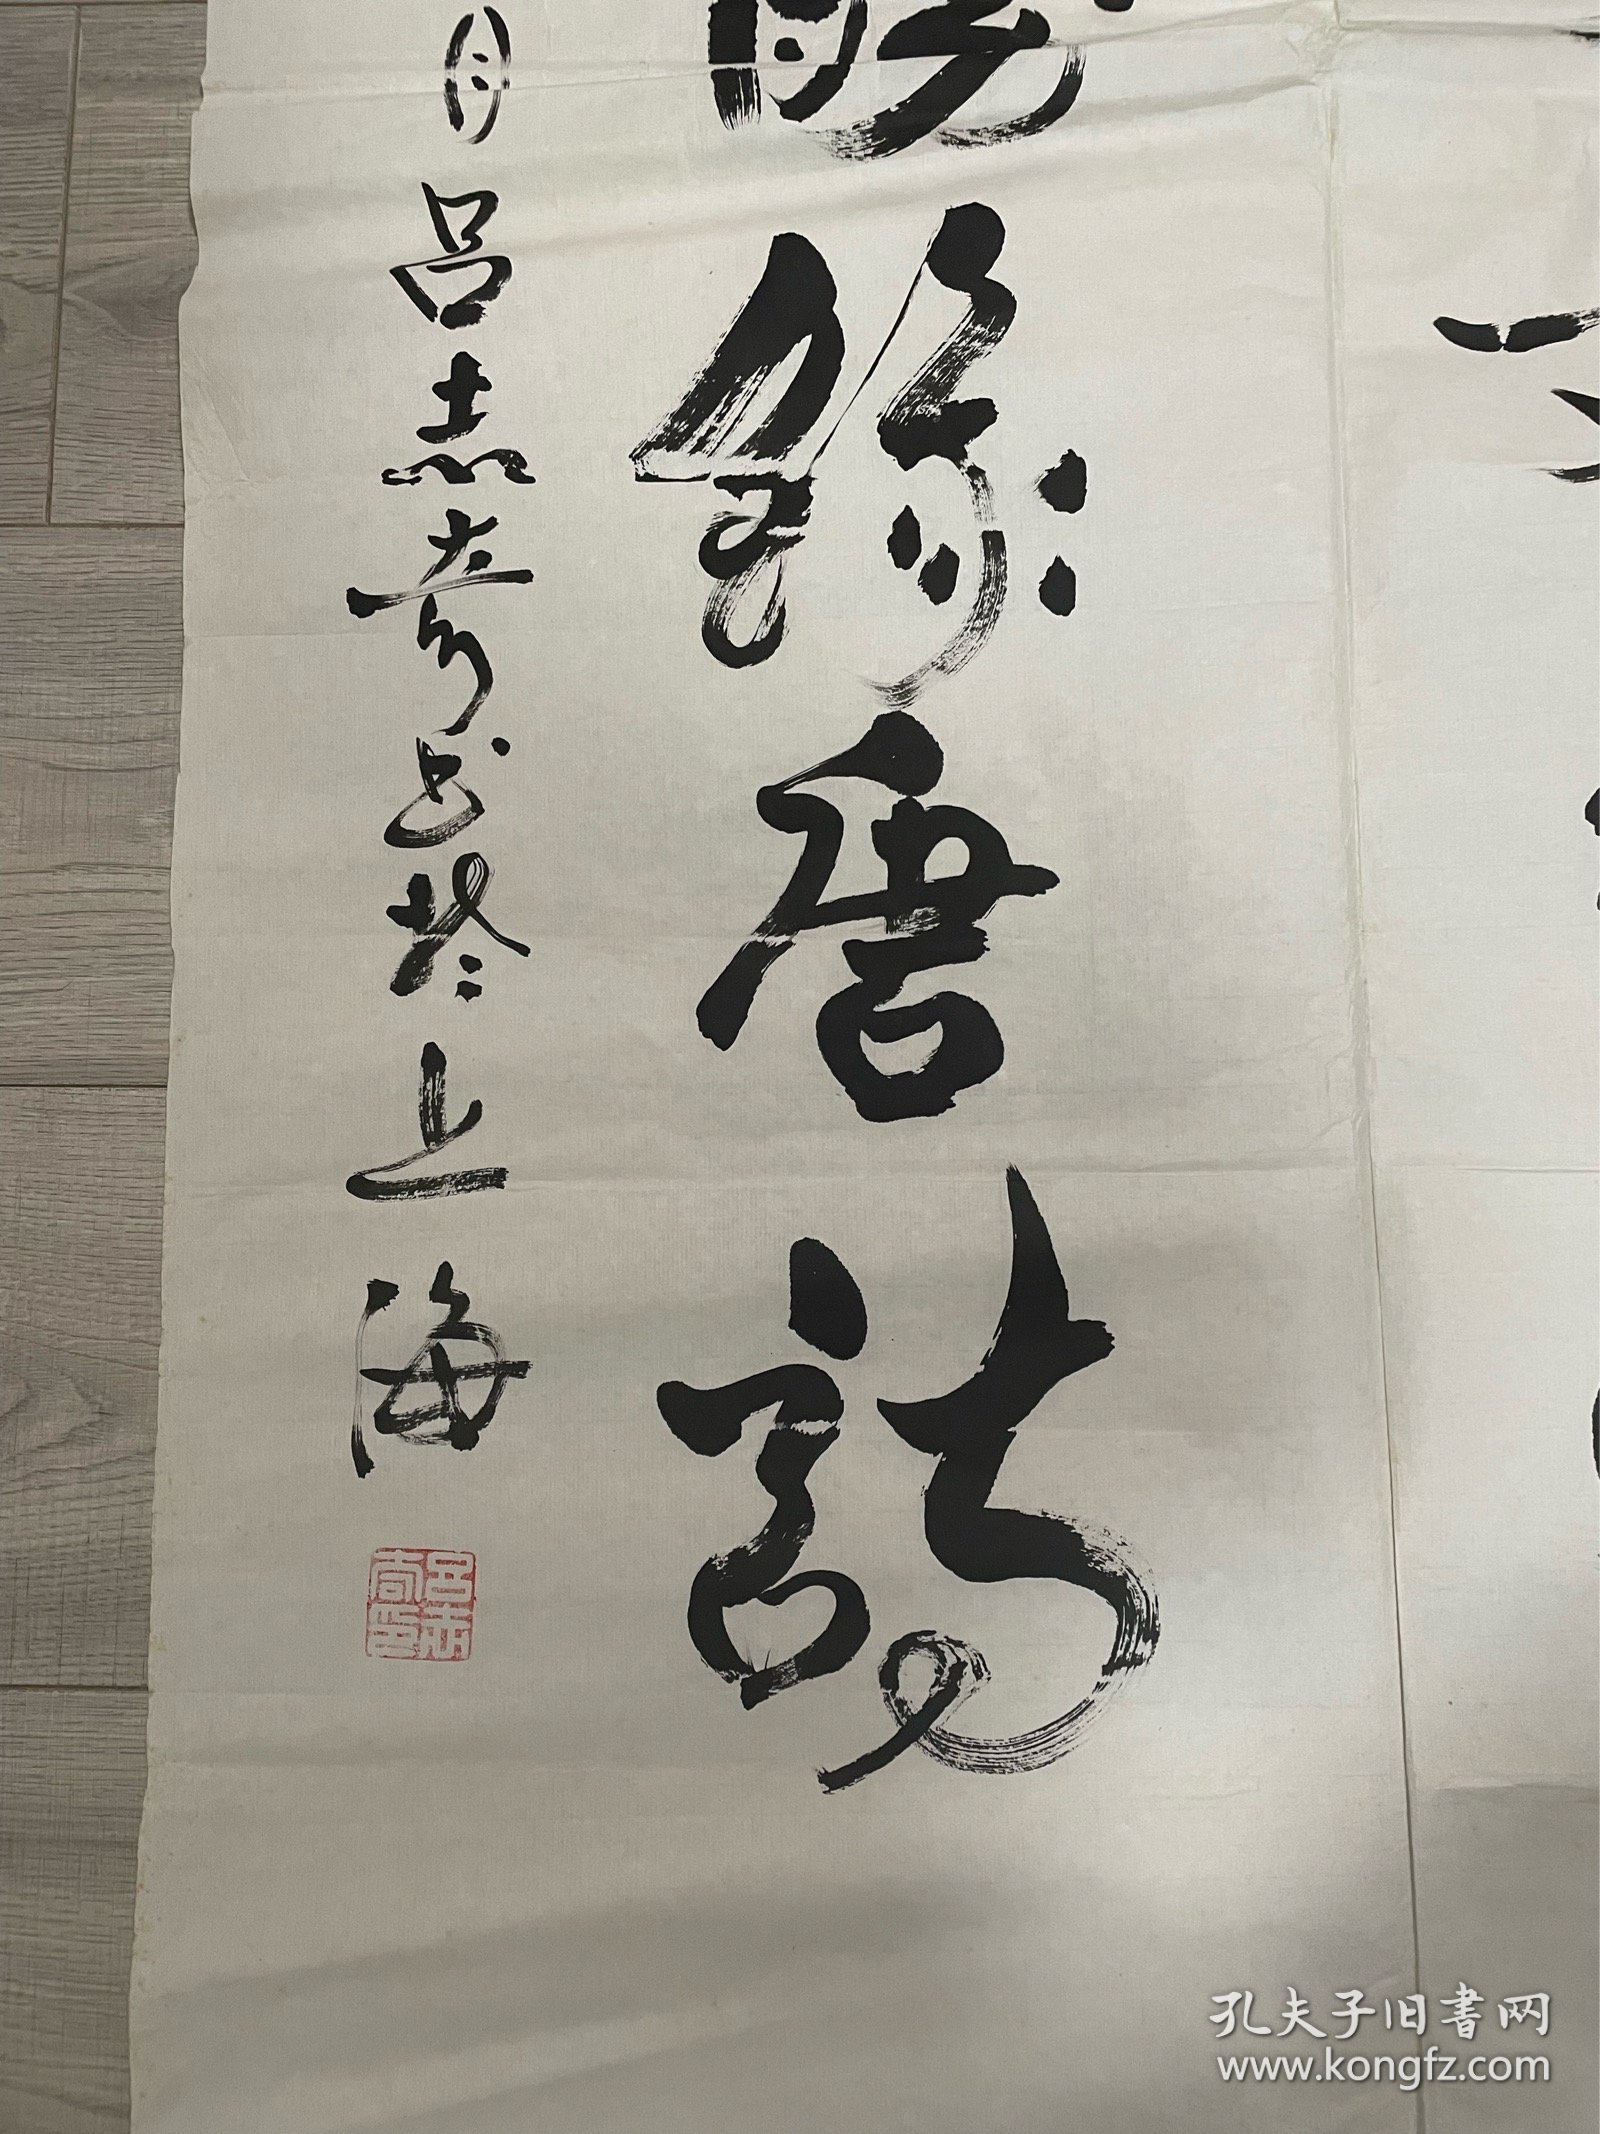 錄唐詩
月吕志奇书於上海
吕志奇印
孔夫子旧书网
www.kongfz.com